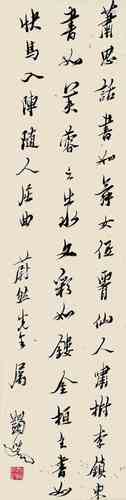 蕭思話書如舞女低腰仙人嘯樹李鎮東
書如芙蓉之出水文彩如鏤金桓玄書如
快馬入陣隨人屈曲 蔚然先生屬